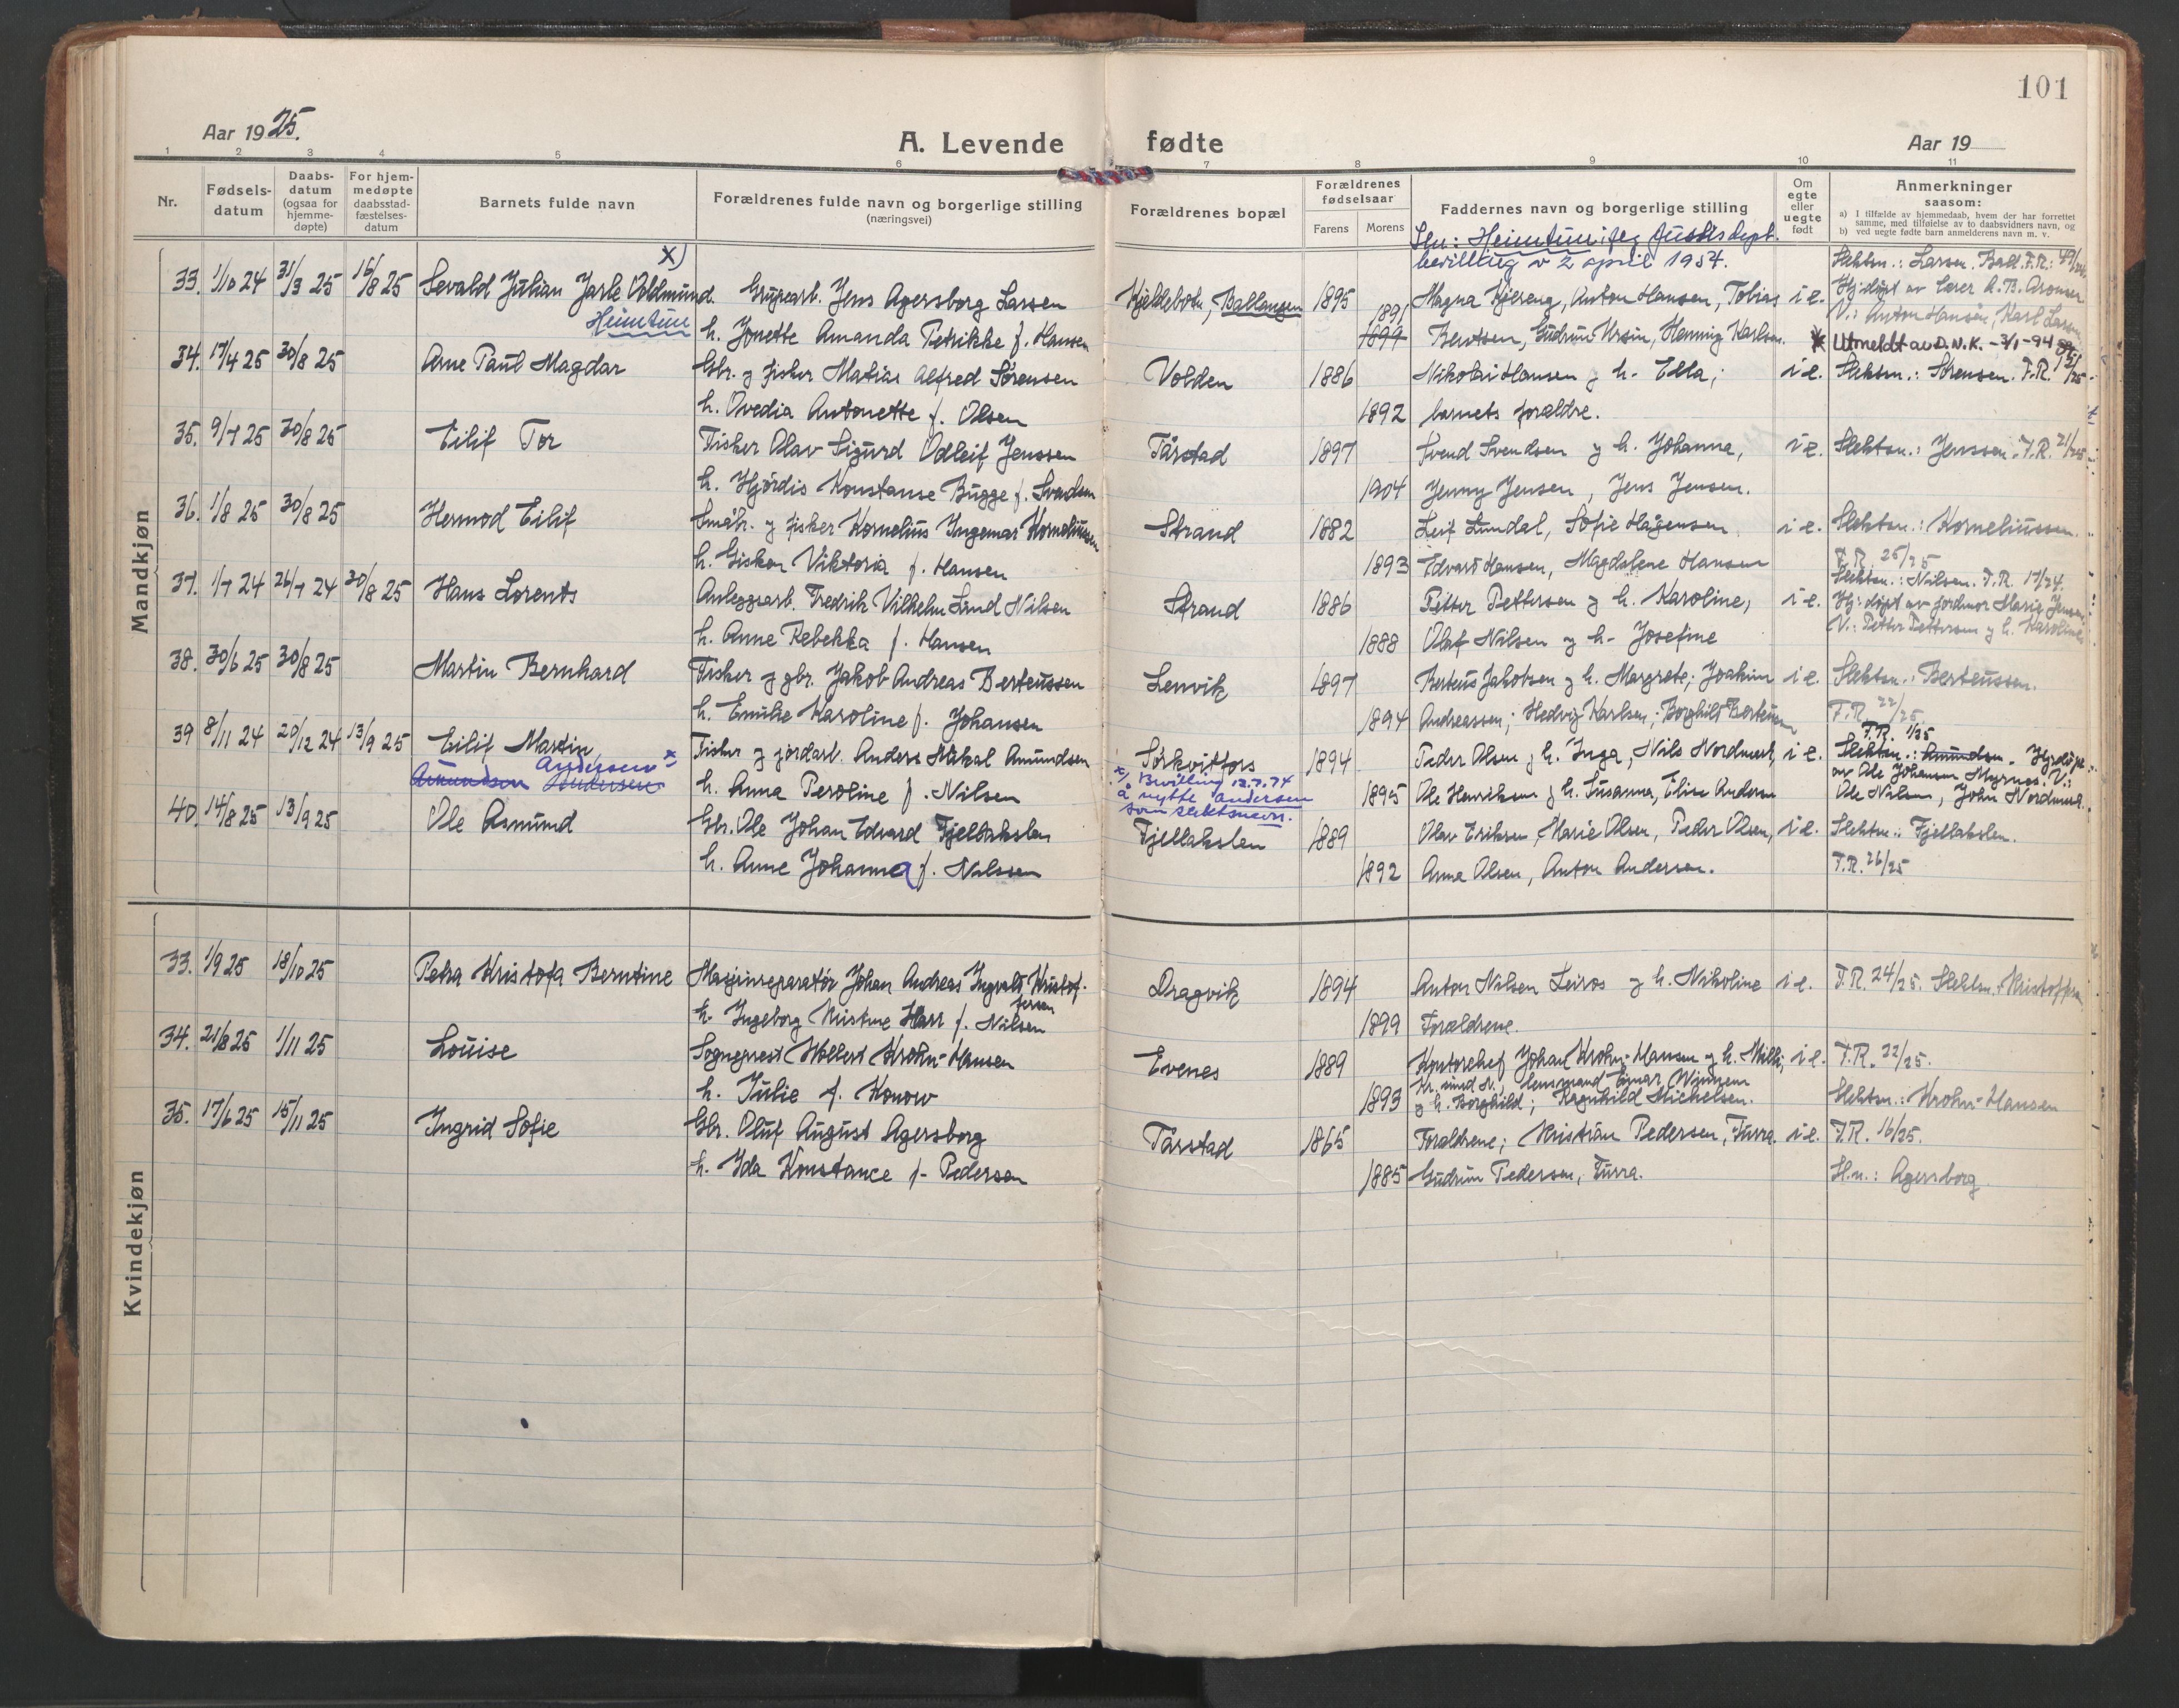 101
Aar 1925.
A. Levende fødte
Aar 19
1 2 3 4 5 6 7 8 9 10 11
Nr.
Fødsels-
datum
Daabs-
datum
(ogsaa for
hjemme-
døpte)
For hjem-
medøpte
daabsstad-
fæstelses-
datum
Barnets fulde navn
Forældrenes fulde navn og borgerlige stilling
(næringsvei)
Forældrenes bopæl
Forældrenes
fødselsaar
Farens Morens
Faddernes navn og borgerlige stilling
Om
egte
eller
uegte
født
Anmerkninger
saasom:
a) I tilfælde av hjemmedaab, hvem der har forrettet
samme, med tilføielse av to daabsvidners navn, og
b) ved uegte fødte barn anmelderens navn m. v.
Mandkjøn
Sln: Heimtun ifig Justisdept.
bevilling v 2 april 1954.
x)
33. 1/10 24 31/3 25 16/8 25 Sevald Julian Jarle Voldmund. Grupearb. Jens Agersborg Larssen Kjeldebotn, Ballangen 1895 Magna Kjereng, Anton Hansen, Tobias i e. Slektsn.: Larssen. Ball. F.R.:
Heimtun h. Jonette Amanda Petrikke f. Hansen 1891 1899 Berntsen, Gudrun Ursin, Henning Karlsen. Hj. døpt av lærer A. B. Aronsen
V.: Anton Hansen, Karl Larsen
* Utmeldt av D.N.K. - 3/1 - 94
34. 17/4 25 30/8 25 Arne Paul Magdar Gbr. og fisker Matias Alfred Sørensen Volden 1886 Nikolai Hansen og h. Ella; i e. Slektsn.: Sørensen. F.R. 15/25
h. Ovedia Antonette f. Olsen 1892 barnets forældre.
35. 9/7 25 30/8 25 Eilif Tor Fisker Olav Sigurd Odleif Jenssen Tårstad 1897 Svend Svendsen og h. Johanna, i e. Slektsn.: Jenssen. F.R. 21/25
h. Hjördis Konstanse Bugge f. Svendsen 1904 Jenny Jensen, Jens Jensen.
36. 1/8 25 30/8 25 Hermod Eilif Småbr. og fisker Kornelius Ingemar Korneliussen Strand 1882 Leif Lundal, Sofie Hågensen i e. Slektsn.: Korneliussen.
h. Giskon Viktoria f. Hansen 1893 Edvard Hansen, Magdalene Hansen F.R. 25/25
37. 1/7 24 26/7 24 30/8 25 Hans Lorents Anleggsarb. Fredrik Vilhelm Lund Nilsen Strand 1886 Petter Pettersen og h. Karoline, i e. Slektsn.: Nilsen. F.R. 17/24
h. Anne Rebekka f. Hansen 1888 Olaf Nilsen og h. Josefine Hj. døpt av jordmor Marie Jensen
V.: Petter Pettersen og h. Karoline
38. 30/6 25 30/8 25 Martin Bernhard Fisker og gbr. Jakob Andreas Berteussen Lenvik 1897 Berteus Jakobsen og h. Margrete; Joakim i e. Slektsn.: Berteussen.
h. Emilie Karoline f. Johansen 1894 Andreassen; Hedvig Karlsen; Borghild Berteussen F.R. 22/25
39 8/11 24 20/12 24 13/9 25 Eilif Martin Fisker og jordarb. Anders Mikal Amundsen Sørkvitfors 1894 Peder Olsen og h. Inga, Nils Nordmark, i e. F.R. 1/25 Slektsn.: Amundsen. Hj.døpt
Amundsen Andersen Andersen x h. Anna Peroline f. Nilsen x) Bevilling 12.7.74 1895 Ole Henriksen og h. Susanna, Elise Andersen av Ole Johansen Myrnes. V.:
å nytte Andersen Ole Nilsen, John Nordmark.
som slektsnavn.
40. 14/8 25 13/9 25 Ole Asmund Gbr. Ole Johan Edvard Fjellakslen Fjellakslen 1889 Olav Eriksen, Marie Olsen, Peder Olsen, i e. Slektsn.: Fjellakslen.
h. Anne Johanna f. Nilssen 1892 Anna Olsen, Anton Andersen. F.R. 26/25
Kvindekjøn
33. 1/9 25 18/10 25 Petra Kristofa Berntine Maskinreparatör Johan Andreas Ingvald Kristof- Dragvik 1894 Anton Nilsen Leiros og h. Nikoline i e. F.R. 24/25. Slektsn. Kristoffersen
fersen
h. Ingeborg Kristine Harr f. Nilsen 1899 Forældrene.
34. 21/8 25 1/11 25 Louise Sogneprest Wollert Krohn-Hansen Evenes 1889 Kontorchef Johan Krohn-Hansen og h. Milli; i e. F.R. 22/25.
h. Julie f. Konow 1893 lensmand Einar Wiumem
og h. Borghild; Ragnhild Michelsen. Slektsn.: Krohn-Hansen
35. 17/6 25 15/11 25 Ingrid Sofie Gbr. Oluf August Agersborg Tårstad 1865 Forældrene; Kristian Pedersen, Furra. i e. F.R. 16/25.
h. Ida Konstance f. Pedersen 1885 Gudrun Pedersen, Furra. Sl.n.: Agersborg